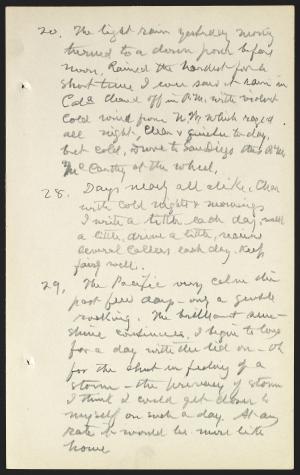 20. The light rain yesterday morning
turned to a down pour before
noon, Rained the hardest for a
short time I ever saw it rain in
Cala Cleared off in P.M. with violent
cold wind from N.W. which raged
all night. Clear & quieter to-day,
but cold, Drove to San Diego this P.M.
McCarthy at the wheel,
28. Days nearly all alike, Clear
with cold nights & mornings
I write a little each day, walk
a little, drive a little, receive
several callers each day. Keep
fairly well.
29, The Pacific very calm this
past few days - only a gentle
rocking. The brilliant sun-
shine continues, I begin to long
for a day with the lid on - Oh
for the shut in feeling of a
storm - the privacy of storm
I think I could get closer to
myself on such a day. At any
rate it would be more like
home